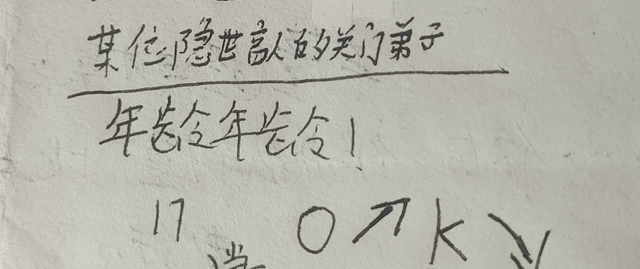 某位隐世高人的关门弟子
年龄令年龄令！
17 O↗K↘